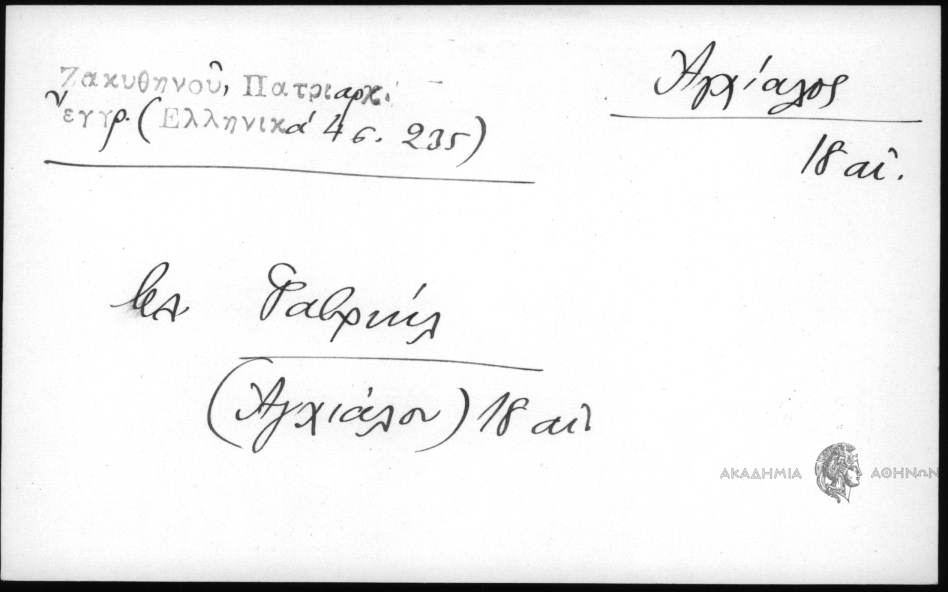 Ζακυθηνοῦ, Πατριαρχ.
ἔγγρ. (Ἑλληνικά 4 σ. 235)
Ἀγχίαλος
18 αἰ.
βλ Γαβριήλ
(Ἀγχιάλου) 18 αἰ
ΑΚΑΔΗΜΙΑ ΑΘΗΝΩΝ